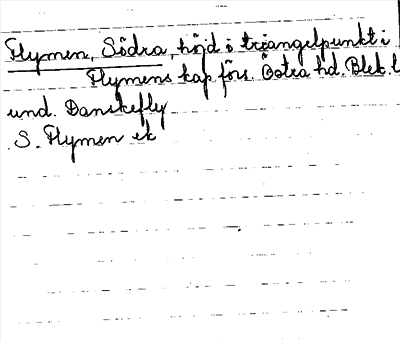 Flymen, Södra, höjd o triangelpunkt i
Flymens kap förs. Östra hd. Blek. l
und. Danskefly
S. Flymen ek